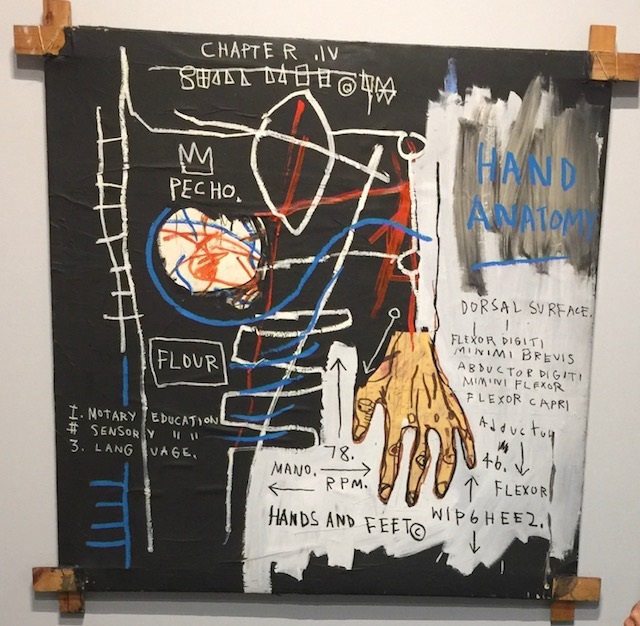 CHAPTER .IV
©
PECHO.
HAND
ANATOMY
DORSAL SURFACE.
FLEXOR DIGITI
MINIMI BREVIS
ABDUCTOR DIGITI
MIMINI FLEXOR
FLEXOR CAPRI
Adductor
46.
FLEXOR
FLOUR
I. MOTARY EDUCATION
# SENSORY " "
3. LANGUAGE.
78.
MANO.
RPM.
HANDS AND FEET©